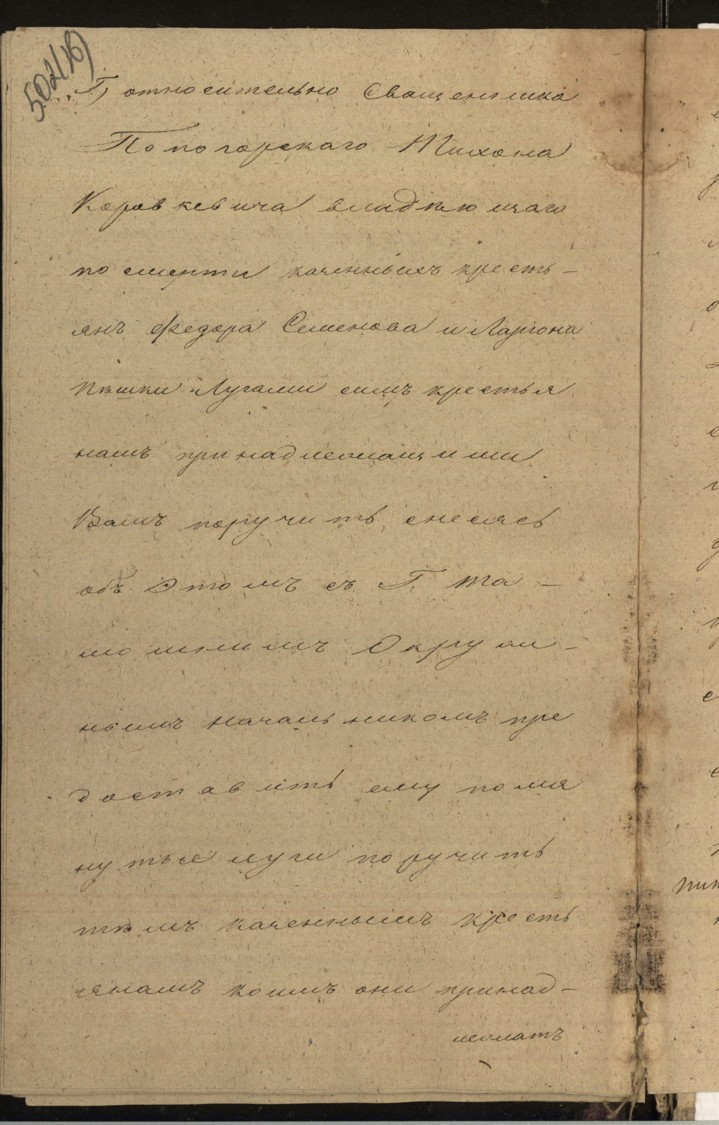 502(18)
„Г) относительно Священника
Попогорскаго Тихона
Коровкевича владѣющаго
по смерти казенныхъ кресть-
янъ Федора Семенова и Лариона
Пѣшки Лугами симъ крестья
намъ принадлежащими
Вамъ поручить, снесясь
объ Этомъ съ Г. та-
мошнимъ Окруж-
нымъ Начальникомъ пре
доставить ему помя
нутые луги поручить
тѣмъ казеннымъ кресть
янамъ коимъ они принад-
лежатъ